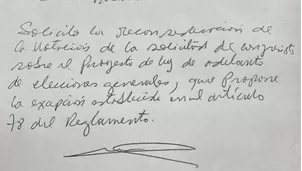 Solicito la reconsideración de
la votación de la solicitud de
sobre el Proyecto de ley de adelanto
de elecciones generales, que propone
la establecida en el artículo
78 del Reglamento.